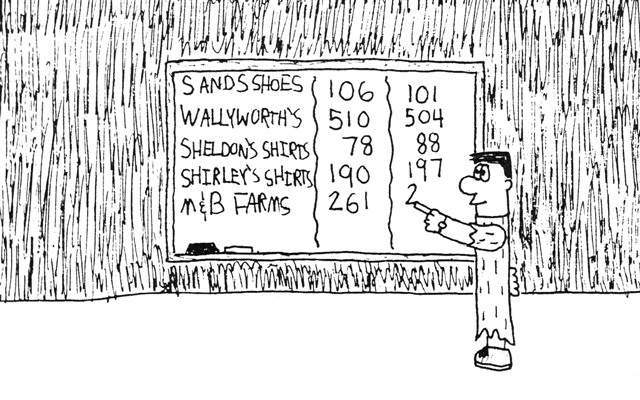 SANDSSHOES 106 101
WALLYWORTH'S 510 504
SHELDON'S SHIRTS 78 88
SHIRLEY'S SHIRTS 190 197
M&B FARMS 261 2